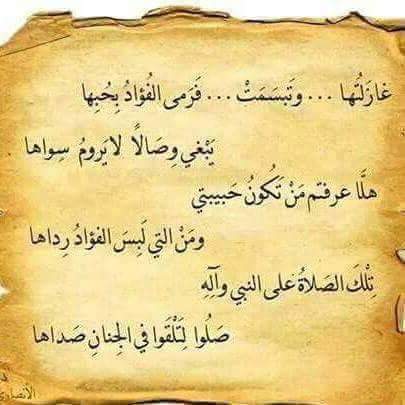 غازَلتُها ... وَتبسَمَتْ ... فَرَمى الفُؤادُ بِحُبِها
يَبْغي وِصَالًا لا يَرومُ سِواها .
هلَّا عرفتم مَنْ تَكُونُ حَبيبتي
ومَنْ التي لَبِسَ الفؤادُ رِداها
تِلْكَ الصَلاةُ على النبي وآلِهِ
صَلُوا لِتَلْقَوا في الجِنانِ صَداها
الأنصاري